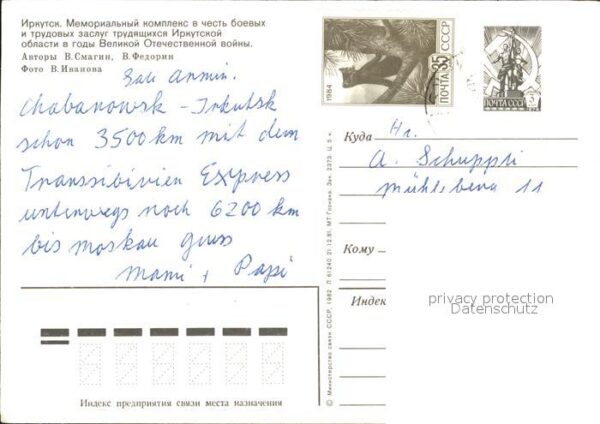 Иркутск. Мемориальный комплекс в честь боевых
и трудовых заслуг трудящихся Иркутской
области в годы Великой Отечественной войны.
Авторы В.Смагин, В.Федорин
Фото В.Иванова
Sali Armin.
Chabarowsk - Irkutsk
schon 3500 km mit dem
Transsibirien Express
unterwegs noch 6200 km
bis Moskau gruss
Mami + Papi
ПОЧТА СССР
35
1984
ПОЧТА СССР
Куда
Hr.
A. Schuppli
Mühleberg 11
Кому
Индекс
privacy protection
Datenschutz
© Министерство связи СССР, 1982. Л 61240 21.12.81. МТ Гознака. Зак. 2373. Ц. 5 к.
Индекс предприятия связи места назначения